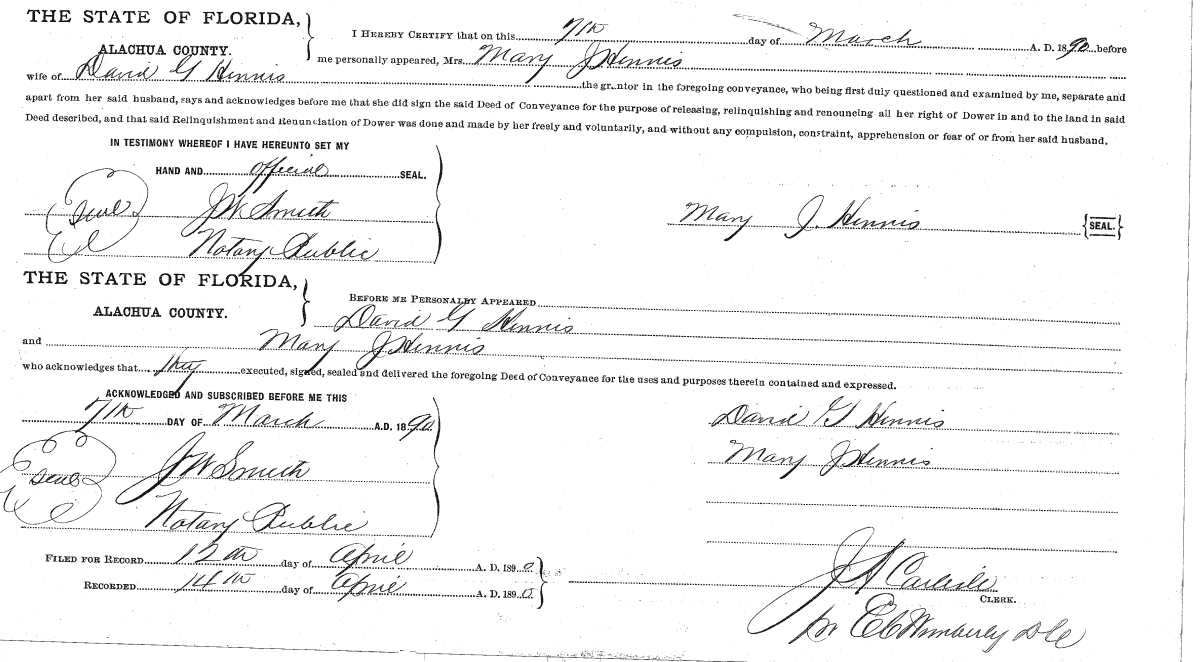 THE STATE OF FLORIDA,
ALACHUA COUNTY.
I HEREBY CERTIFY that on this 7th day of March A. D. 1890 before
me personally appeared, Mrs. Mary J Hinnis
wife of David G Hinnis the grantor in the foregoing conveyance, who being first duly questioned and examined by me, separate and
apart from her said husband, says and acknowledges before me that she did sign the said Deed of Conveyance for the purpose of releasing, relinquishing and renouncing all her right of Dower in and to the land in said
Deed described, and that said Relinquishment and Renunciation of Dower was done and made by her freely and voluntarily, and without any compulsion, constraint, apprehension or fear of or from her said husband.
IN TESTIMONY WHEREOF I HAVE HEREUNTO SET MY
HAND AND official SEAL.
Seal J W Smith
Notary Public
Mary J. Hinnis {SEAL.}
THE STATE OF FLORIDA,
ALACHUA COUNTY.
BEFORE ME PERSONALLY APPEARED
David G Hinnis
and Mary J Hinnis
who acknowledges that they executed, signed, sealed and delivered the foregoing Deed of Conveyance for the uses and purposes therein contained and expressed.
ACKNOWLEDGED AND SUBSCRIBED BEFORE ME THIS
7th DAY OF March A.D. 1890
Seal J W Smith
Notary Public
David G Hinnis
Mary J Hinnis
FILED FOR RECORD 12th day of April A. D. 1890
RECORDED 14th day of April A. D. 1890
J A Carlisle
CLERK.
pr E C Wimberly D C